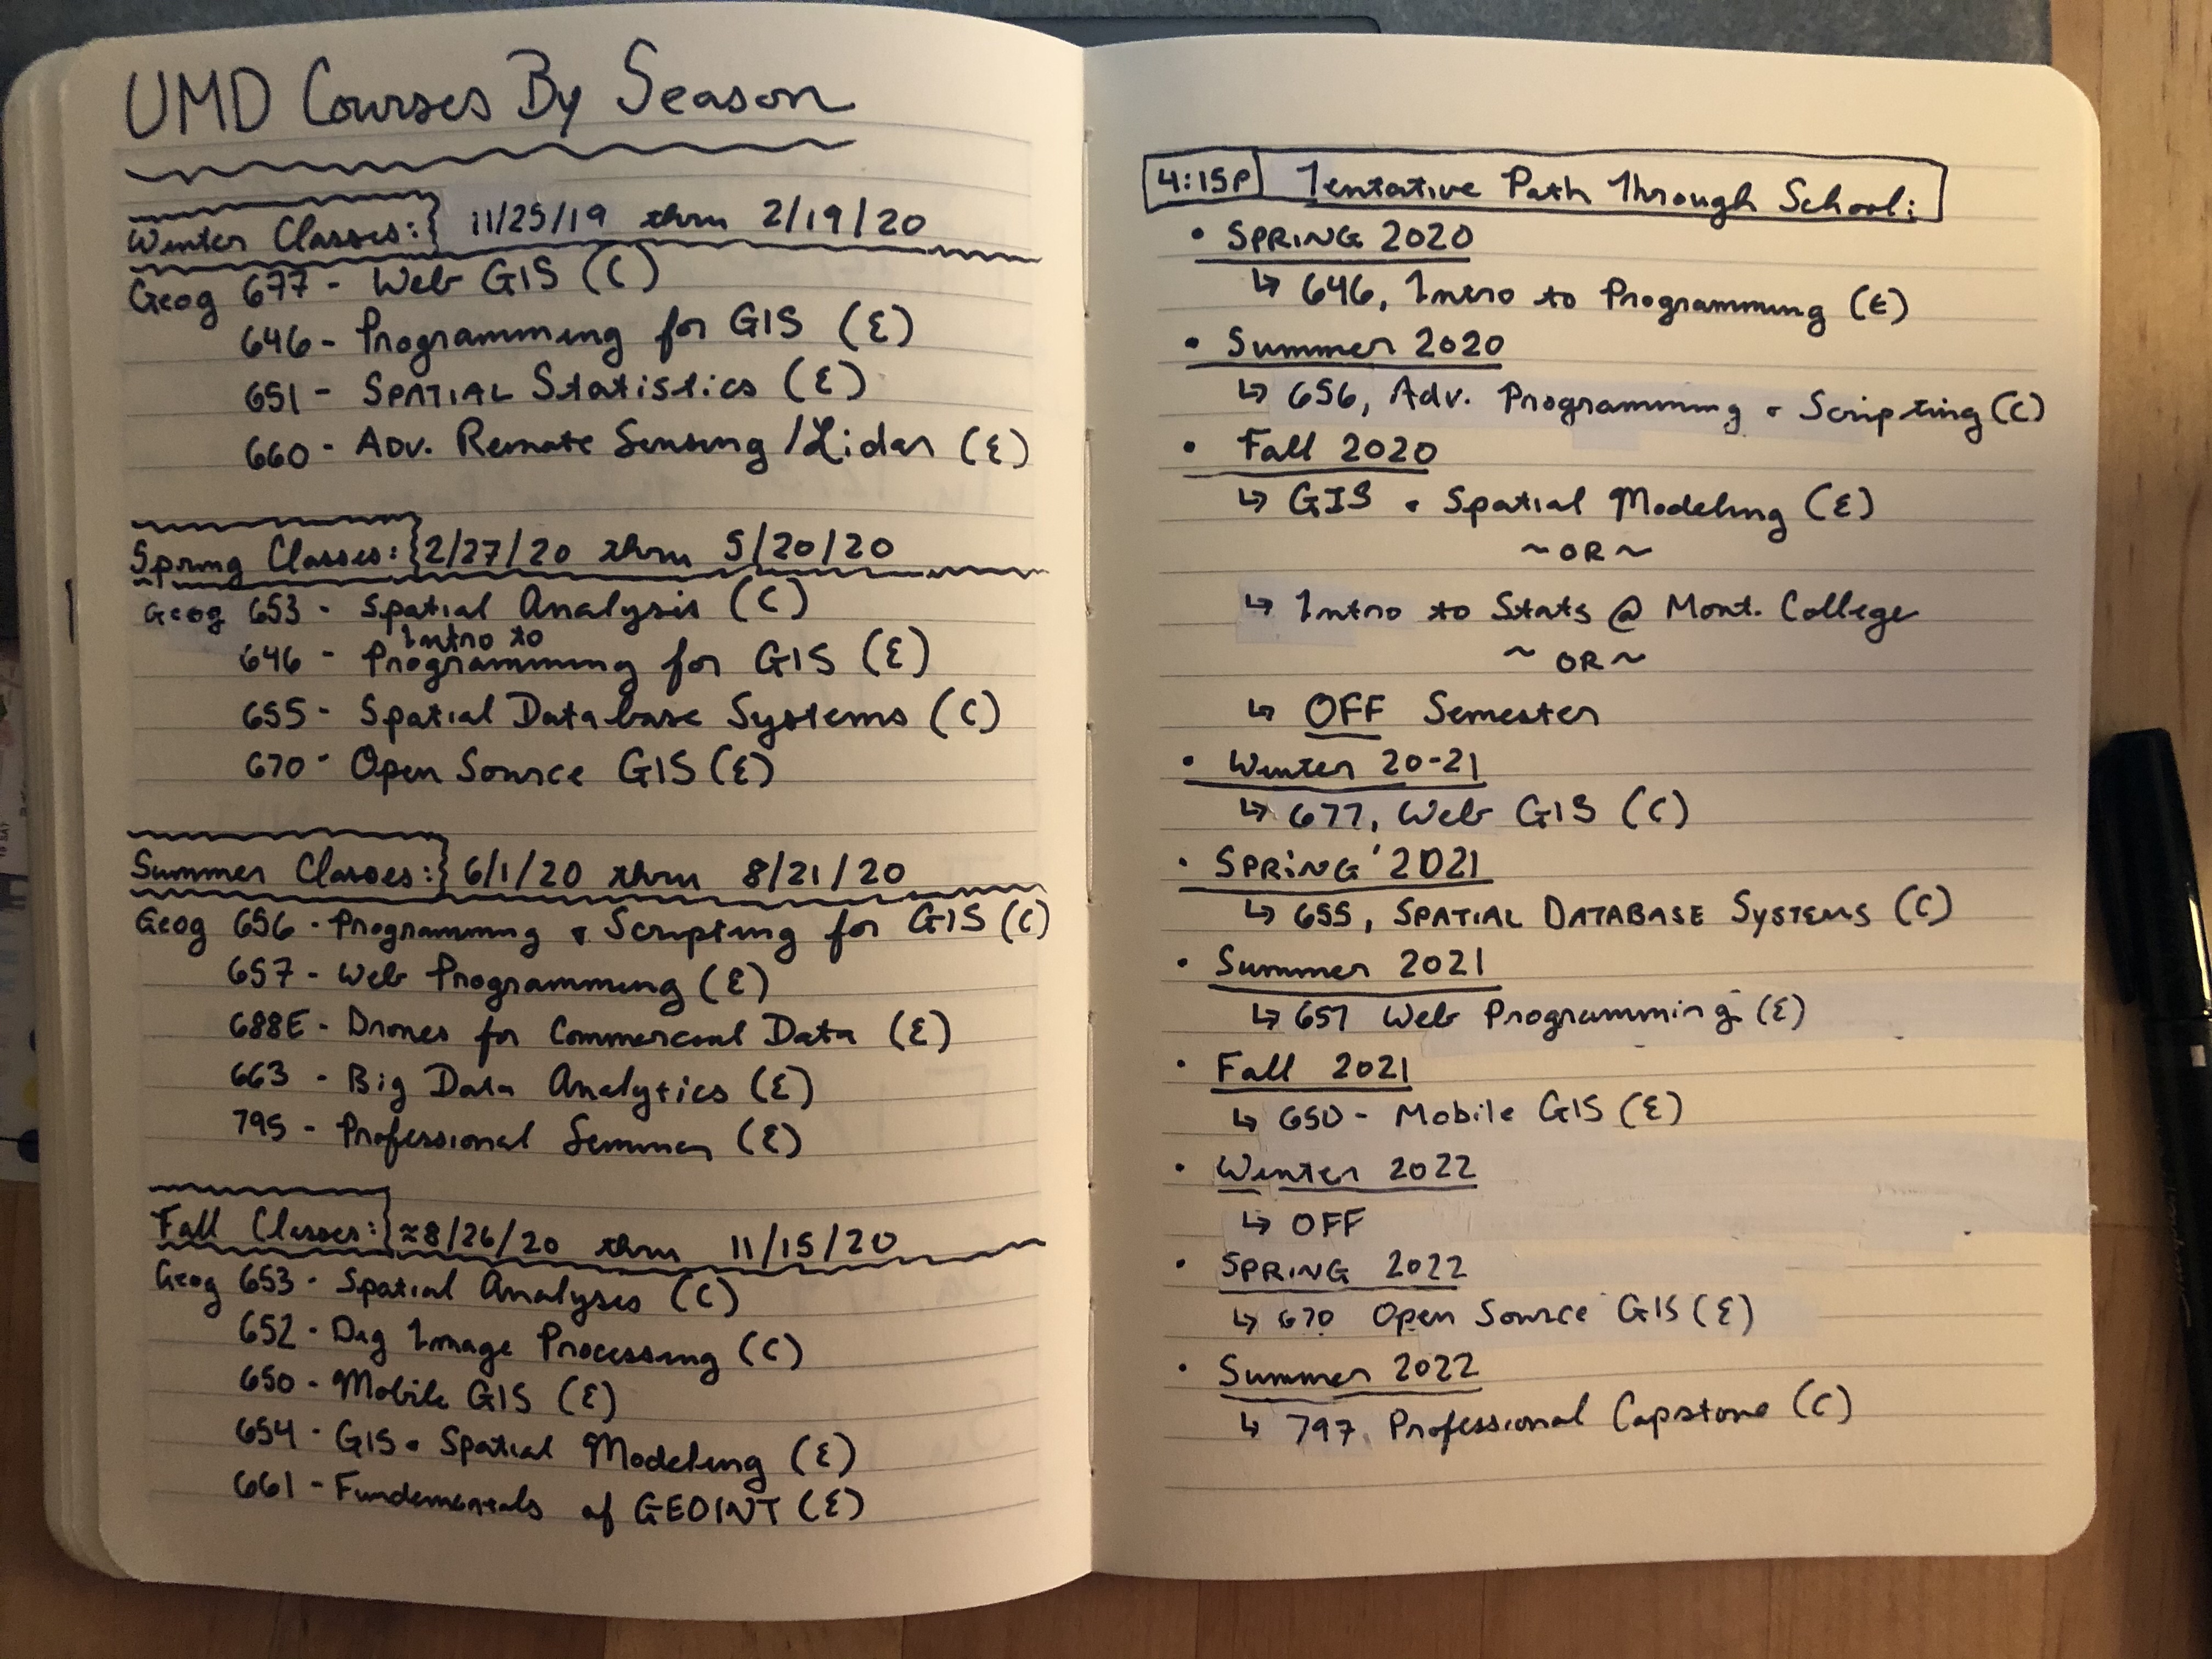 UMD Courses By Season
Winter Classes: 11/25/19 thru 2/19/20
Geog 677 - Web GIS (C)
646 - Programming for GIS (E)
651 - SPATIAL Statistics (E)
660 - Adv. Remote Sensing /Lidar (E)
Spring Classes: 2/27/20 thru 5/20/20
Geog 653 - Spatial Analysis (C)
Intro to
646 - Programming for GIS (E)
655 - Spatial Database Systems (C)
670 - Open Source GIS (E)
Summer Classes: 6/1/20 thru 8/21/20
Geog 656 - Programming & Scripting for GIS (C)
657 - Web Programming (E)
688E - Drones for Commercial Data (E)
663 - Big Data Analytics (E)
795 - Professional Seminar (E)
Fall Classes: ≈8/26/20 thru 11/15/20
Geog 653 - Spatial Analyses (C)
652 - Dig Image Processing (C)
650 - Mobile GIS (E)
654 - GIS & Spatial Modeling (E)
661 - Fundementals of GEOINT (E)
4:15P Tentative Path Through School:
• SPRING 2020
↳ 646, Intro to Programming (E)
• Summer 2020
↳ 656, Adv. Programming & Scripting (C)
• Fall 2020
↳ GIS & Spatial Modeling (E)
~ OR ~
↳ Intro to Stats @ Mont. College
~ OR ~
↳ OFF Semester
• Winter 20-21
↳ 677, Web GIS (C)
• SPRING '2021
↳ 655, SPATIAL DATABASE SYSTEMS (C)
• Summer 2021
↳ 657 Web Programming (E)
• Fall 2021
↳ 650 - Mobile GIS (E)
• Winter 2022
↳ OFF
• SPRING 2022
↳ 670 Open Source GIS (E)
• Summer 2022
↳ 797, Professional Capstone (C)